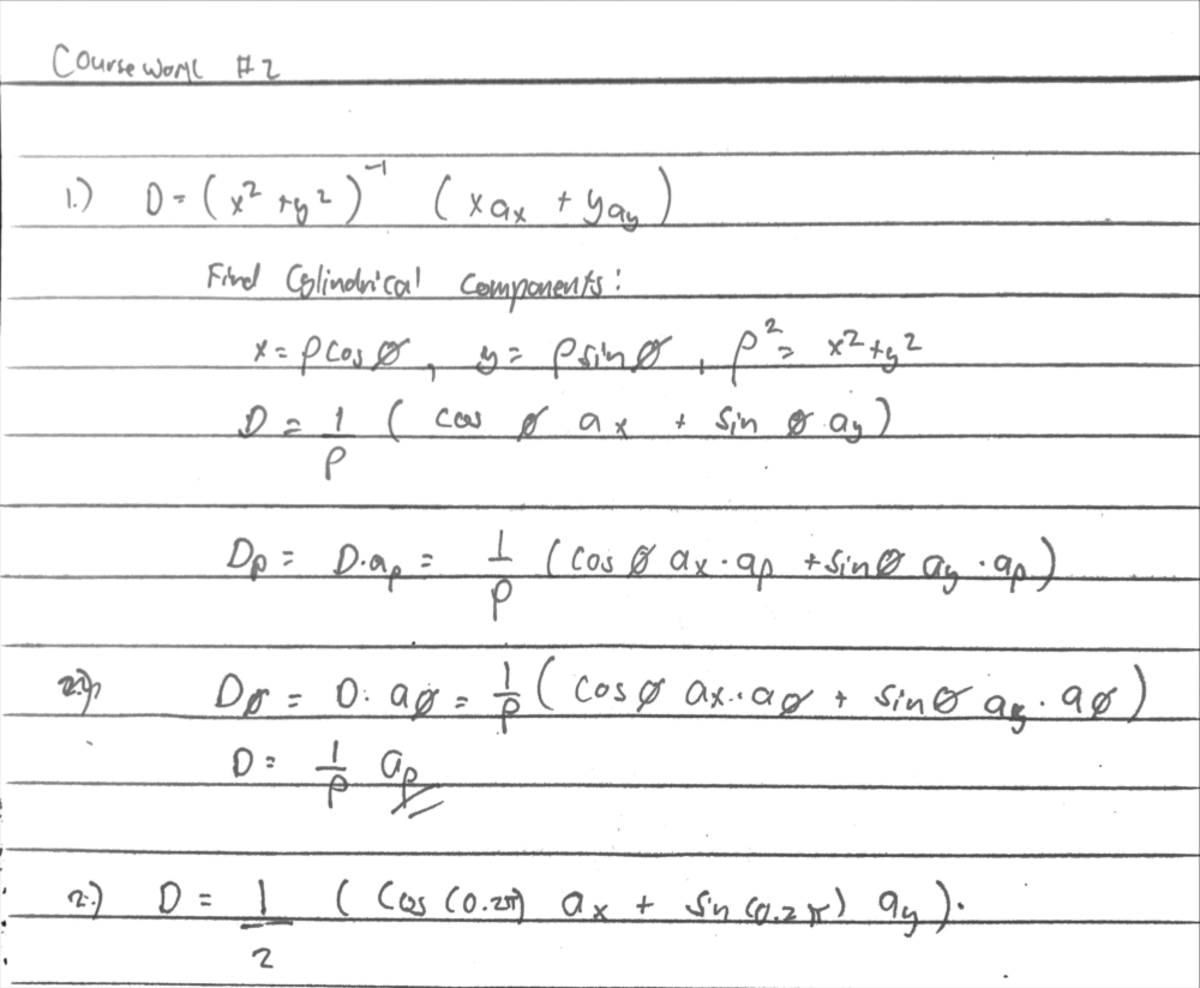 Coursework #2
1.) D = (x² + y²)⁻¹ (x ax + y ay)
Find Cylindrical Components:
x = ρ cos ø, y = ρ sin ø, ρ² = x² + y²
D = 1/ρ ( cos ø ax + sin ø ay )
Dρ = D·aρ = 1/ρ ( cos ø ax · aρ + sin ø ay · aρ )
Dø = D · aø = 1/ρ ( cos ø ax · aø + sin ø ay · aø )
D = 1/ρ aρ
2.) D = 1/2 ( cos (0.2π) ax + sin (0.2π) ay ).